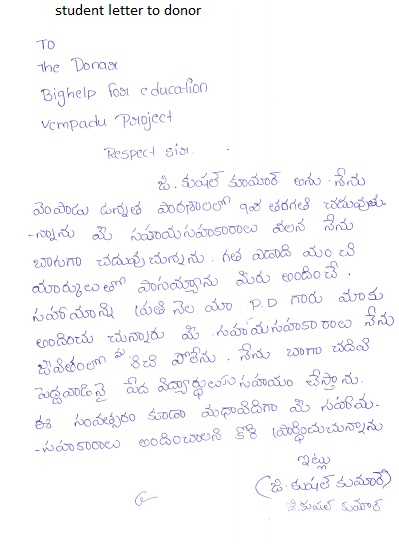 student letter to donor
To
The Donar
Bighelp for education
Vempadu Project
Respect sir.
జి. కుషల్ కుమార్ అను నేను
వెంపాడు ఉన్నత పాఠశాలలో తరగతి చదువుతు-
-న్నాను మీ సహాయసహకారాలు వలన నేను
బాగుగా చదువుచున్నాను. గత ఏడాది మంచి
మార్కులుతో పాసయ్యాను మీరు అందించే.
సహాయాన్ని ప్రతి నెల మా P.D గారు మాకు
అందించు చున్నారు మీ సహాయసహకారాలు నేను
జీవితంలో పోలేను. నేను బాగా చదివి
పెద్దవాడినై పేద విద్యార్థులకు సహాయం చేస్తాను.
ఈ సంవత్సరం కూడా మీ సహాయ-
-సహకారాలు అందించాలని కోరి ప్రార్థించుచున్నాను
ఇట్లు
(జి. కుషల్ కుమార్)
జి.కుషల్ కుమార్